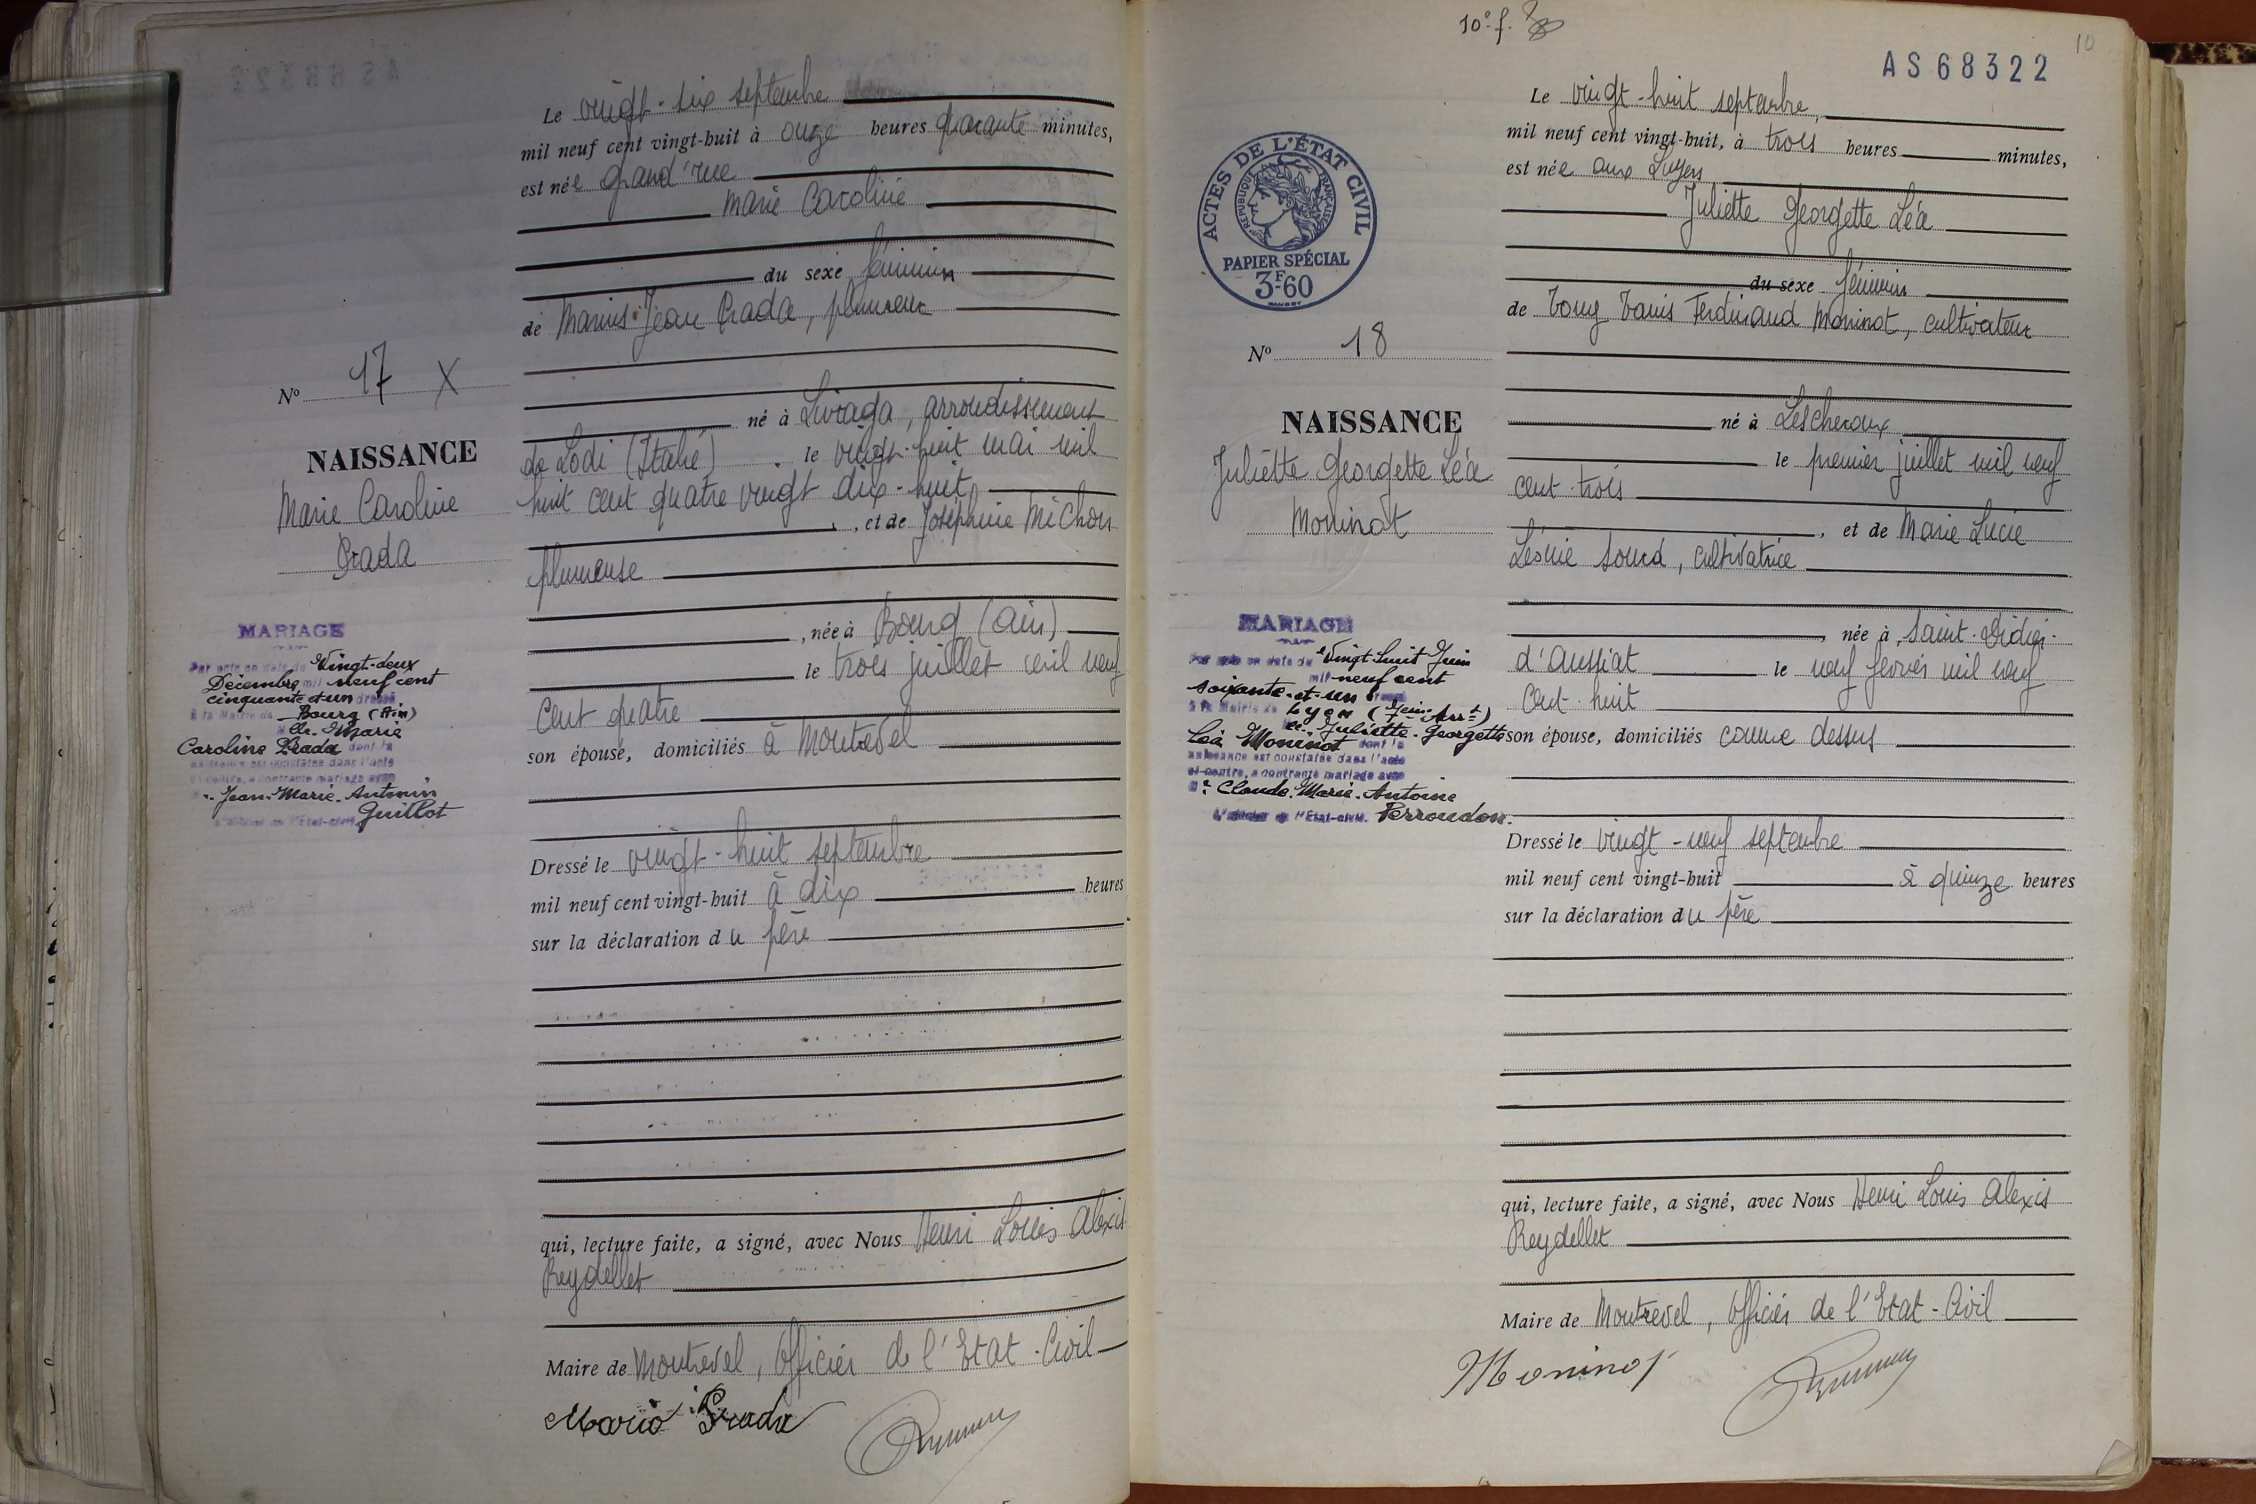 Le vingt-six septembre
mil neuf cent vingt-huit à onze heures quarante minutes,
est née grand'rue
Marie Caroline
du sexe féminin
de Marius Jean Prada, plumeur
Nº 17 X
né à Livraga, arrondissement
de Lodi (Italie) le vingt-huit mai mil
huit cent quatre vingt dix-huit
NAISSANCE
Marie Caroline
Prada
, et de Joséphine Michon
plumeuse
, née à Bourg (Ain)
le trois juillet mil neuf
cent quatre
son épouse, domiciliés à Montrevel
MARIAGE
Par acte en date du Vingt-deux
Décembre mil neuf cent
cinquante et un dressé
à la Mairie de Bourg (Ain)
Marie
Caroline Prada dont la
naissance est constatée dans l'acte
ci-contre, a contracté mariage avec
Jean-Marie-Antonin
Guillot
L'officier de l'Etat-civil
Dressé le vingt-huit septembre
mil neuf cent vingt-huit à dix heures
sur la déclaration du père
qui, lecture faite, a signé, avec Nous Henri Louis Alexis
Reydellet
Maire de Montrevel, Officier de l'Etat-Civil
Mario Prada
10e f.
10
AS68322
ACTES DE L'ÉTAT CIVIL
RÉPUBLIQUE FRANÇAISE
PAPIER SPÉCIAL
3F60
Le vingt-huit septembre
mil neuf cent vingt-huit, à trois heures minutes,
est née aux Luyers
Juliette Georgette Léa
du sexe féminin
de Tony Ferdinand Moninot, cultivateur
Nº 18
né à Lescheroux
le premier juillet mil neuf
cent trois
NAISSANCE
Juliette Georgette Léa
Moninot
, et de Marie Lucie
Léonie Sourd, cultivatrice
, née à Saint-Didier-
d'Aussiat le neuf février mil neuf
cent huit
son épouse, domiciliés comme dessus
MARIAGE
Par acte en date du Vingt huit Juin
mil neuf cent
soixante-et-un dressé
à la Mairie de Lyon (7eme Arrt)
Juliette-Georgette
Léa Moninot dont la
naissance est constatée dans l'acte
ci-contre, a contracté mariage avec
Claude-Marie-Antoine
L'officier de l'Etat-civil. Perroudon.
Dressé le vingt-neuf septembre
mil neuf cent vingt-huit à quinze heures
sur la déclaration du père
qui, lecture faite, a signé, avec Nous Henri Louis Alexis
Reydellet
Maire de Montrevel, Officier de l'Etat-Civil
Moninot